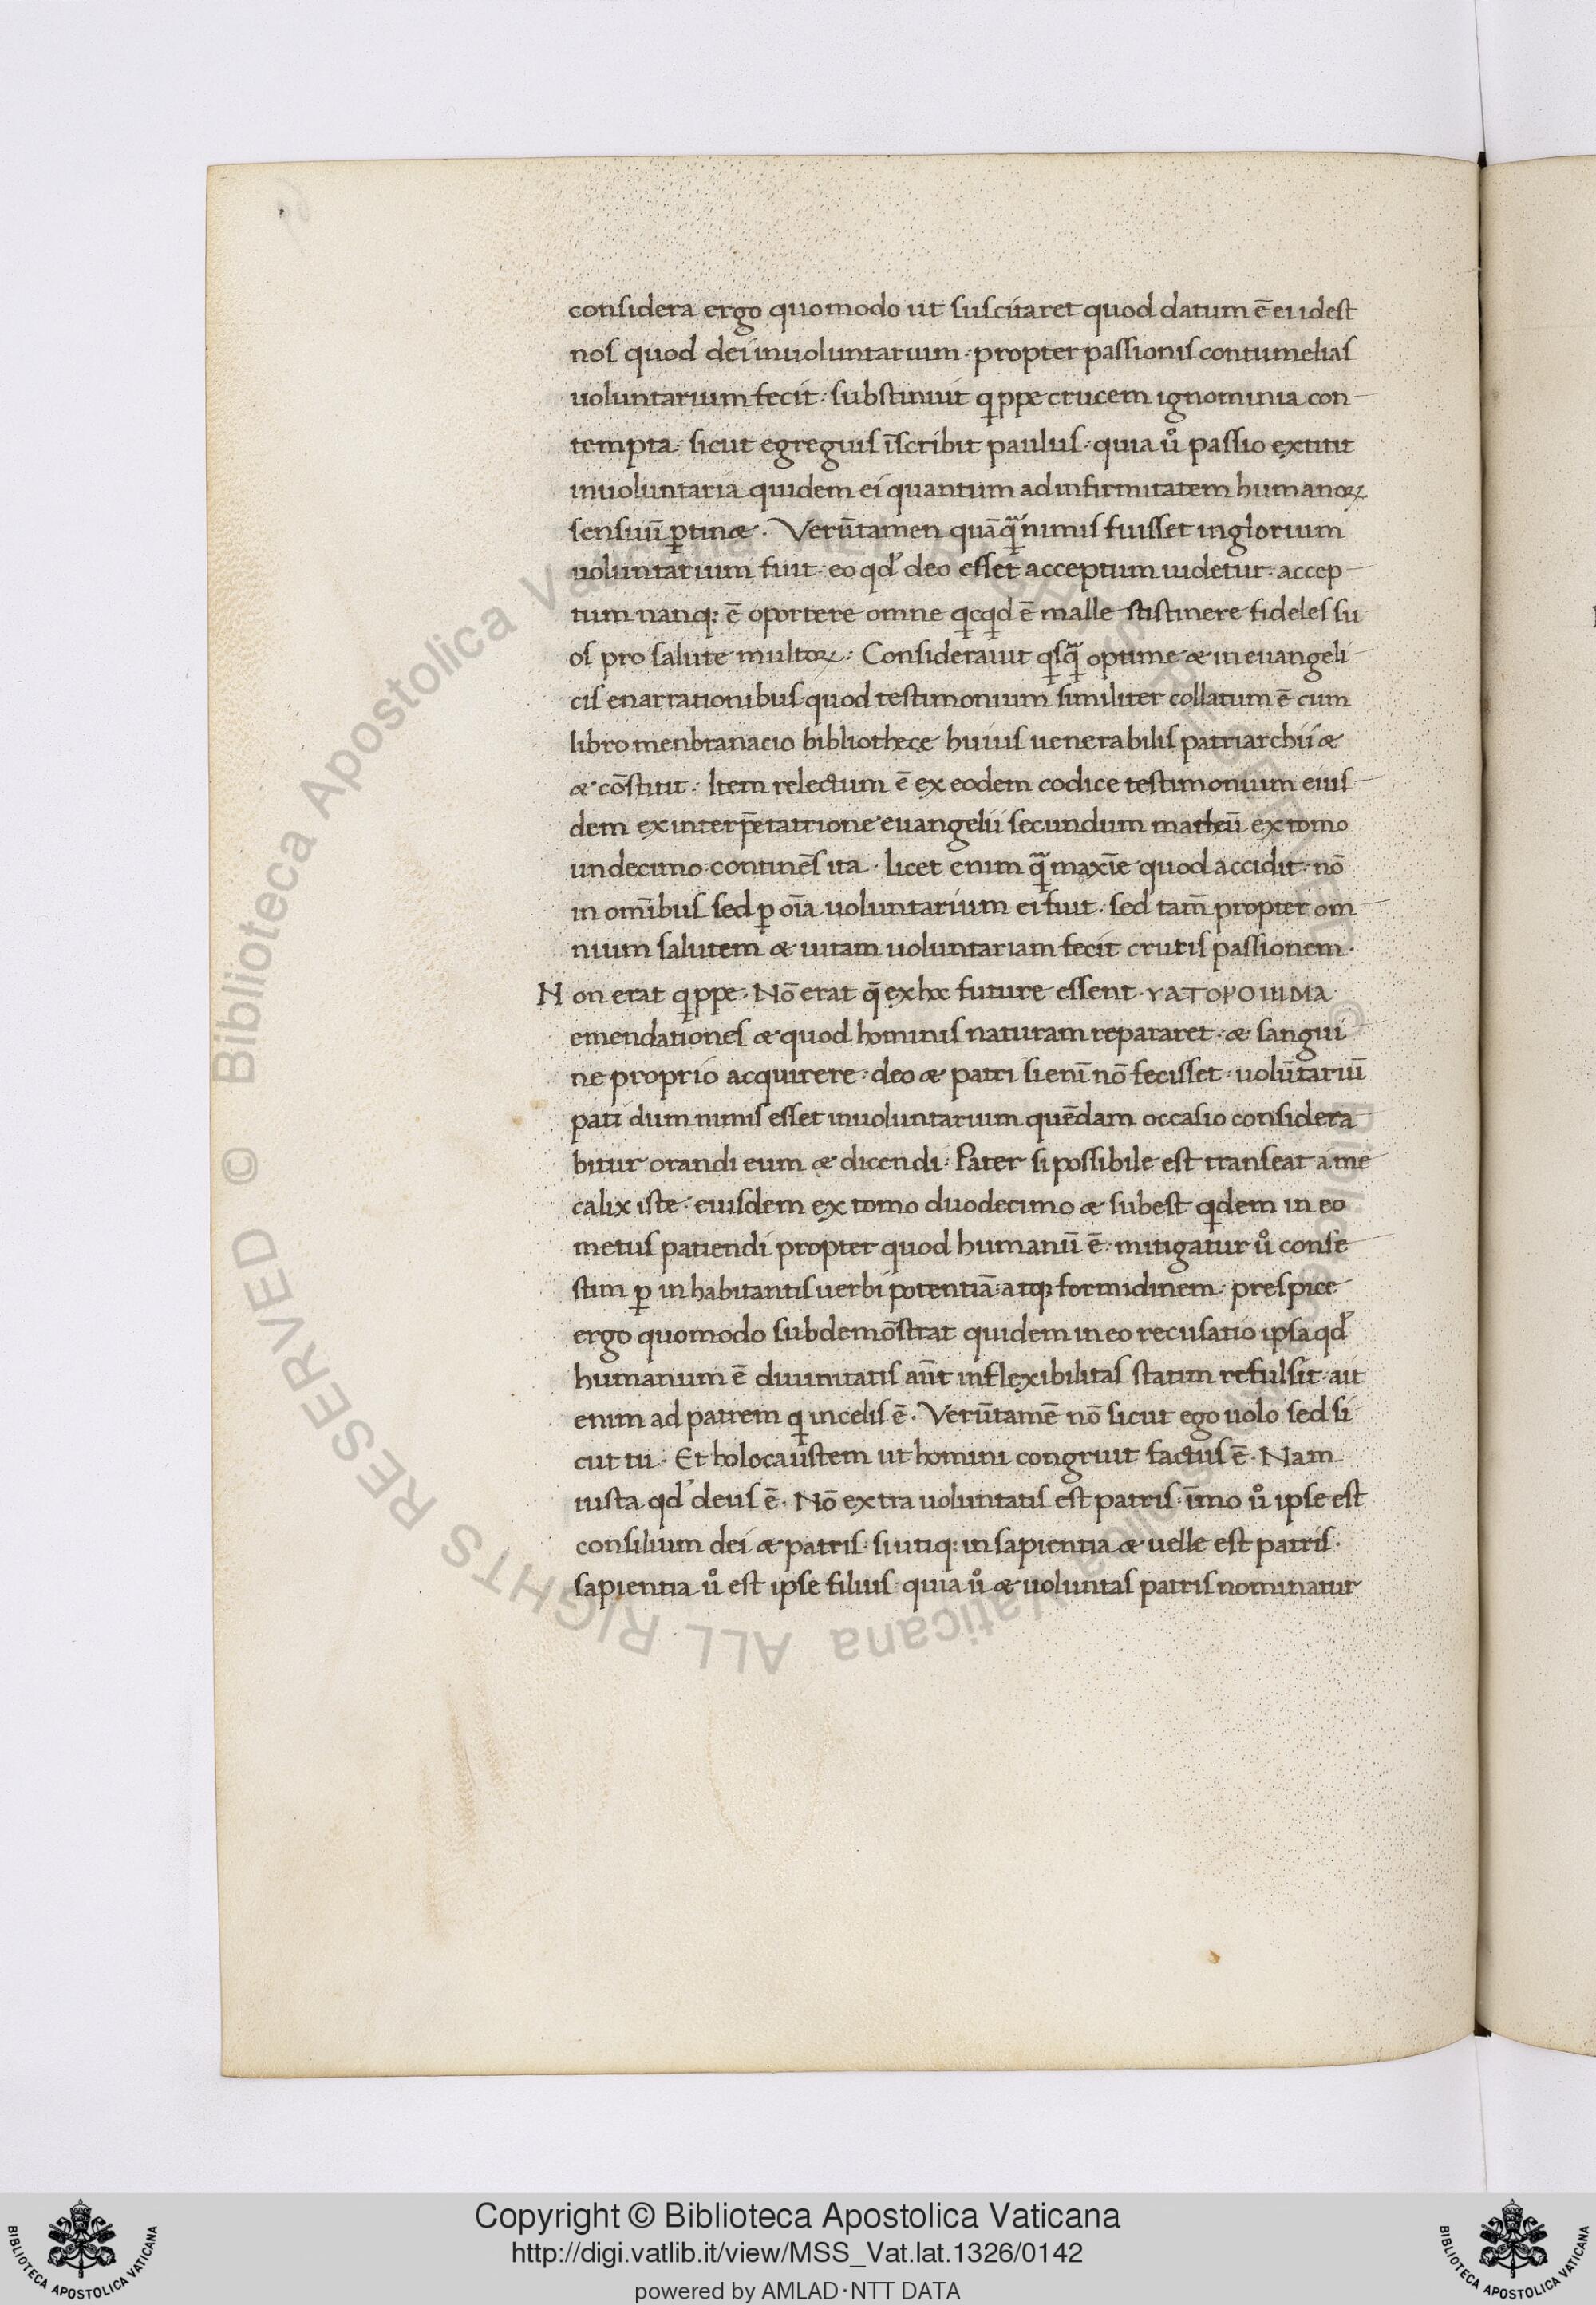 considera ergo quomodo ut suscitaret quod datum ē ei idest
nos quod dei inuoluntarium · propter passionis contumelias
uoluntarium fecit · substinuit qppe crucem ignominia con
tempta · sicut egregius īscribit paulus · quia uº passio extitit
inuoluntaria quidem ei quantum ad infirmitatem humanoꝝ
sensuū ꝑtinæ · Verūtamen quāqᵃ nimis fuisset inglorium
uoluntarium fuit · eo qd' deo esset acceptum uidetur · accep
tum nanq; ē oportere omne qcqd ē malle stistinere fideles su
os pro salute multoꝝ · Considerauit qsqᵃ optime æ in euangeli
cis enarrationibus quod testimonium similiter collatum ē cum
libro menbranacio bibliothece huius uenerabilis patriarchii æ
æ cōstitit · Item relectum ē ex eodem codice testimonium eius
dem ex interp̄etatrione euangelii secundum matheū ex tomo
undecimo · continēs ita · licet enim qᵃ maxīe quod accidit · nō
in omībus sed ꝑ oīa uoluntarium ei fuit · sed tam̄ propter om
nium salutem æ uitam uoluntariam fecit crutis passionem ·
Non erat qppe · Nō erat q̄ ex hoc future essent · ΥΑΤΟΡΟΙΙΙΜΑ
emendationes æ quod hominis naturam repararet · æ sangui
ne proprio acquirere · deo æ patri si enī nō fecisset · uolūtariū
pati dum nimis esset inuoluntarium quēdam occasio considera
bitur orandi eum æ dicendi · Pater si possibile est transeat a me
calix iste · eiusdem ex tomo duodecimo æ subest qdem in eo
metus patiendi propter quod humanū ē · mitigatur uº confe
stim ꝑ inhabitantis uerbi potentiā · atq; formidinem · prespice
ergo quomodo subdemōstrat quidem in eo recusatio ipsa qd'
humanum ē diuinitatis aūt inflexibilitas statim refulsit · ait
enim ad patrem q in celis ē · Verūtamē nō sicut ego uolo sed si
cut tu · Et holocaustem ut homini congruit factus ē · Nam
iusta qd' deus ē · Nō extra uoluntatis est patris · īmo uº ipse est
consilium dei æ patris · si utiq; in sapientia æ uelle est patris ·
sapientia uº est ipse filius · quia uº æ uoluntas patris nominatur
Copyright © Biblioteca Apostolica Vaticana
http://digi.vatlib.it/view/MSS_Vat.lat.1326/0142
powered by AMLAD·NTT DATA
BIBLIOTECA APOSTOLICA VATICANA
BIBLIOTECA APOSTOLICA VATICANA
© Biblioteca Apostolica Vaticana ALL RIGHTS RESERVED
© Biblioteca Apostolica Vaticana ALL RIGHTS RESERVED